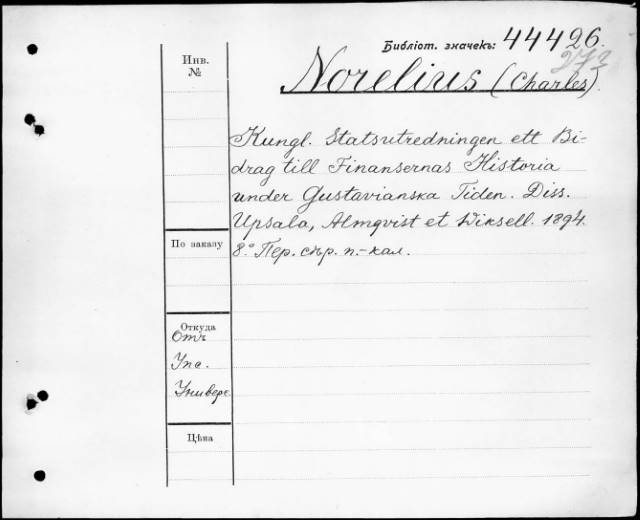 Библіот. значекъ: 44426.
273
Инв.
№
Norelius (Charles).
Kungl. Statsutredningen ett Bi-
drag till Finansernas Historia
under Gustavianska Tiden. Diss.
Upsala, Almqvist et Wiksell. 1894.
8.° Пер. сѣр. п.-кал.
По заказу
Откуда
Отъ
Упс.
Универс
Цѣна